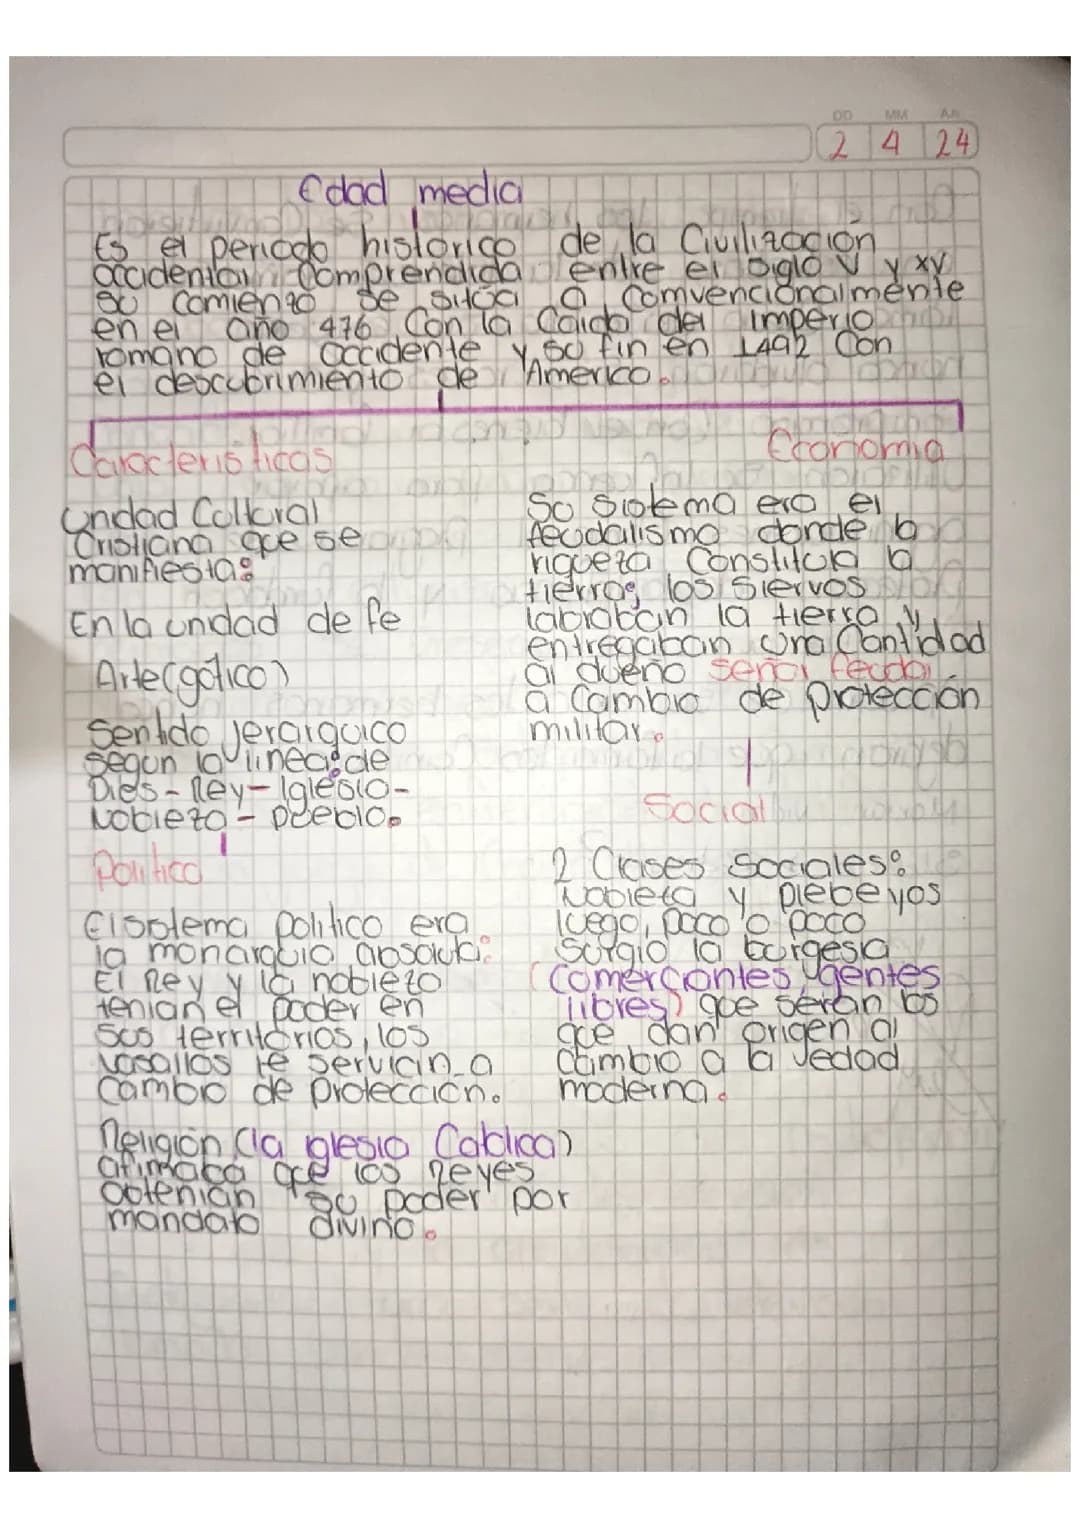 DD MM AA
2 4 24
Edad media
Es el periodo historico de la Civilización
occidental Comprendida entre el siglo V y XV
su comienzo se sitúa a comvencionalmente
en el año 476 Con la Caida del imperio
romano de occidente y su fin en 1492 Con
el descubrimiento de America.
Caracteristicas
Unidad Cultural
Cristiana que se
manifiesta:
En la unidad de fe
Arte (gótico)
Sentido jerarquico
segun la linea: de
Dies - Rey - Iglesia -
Nobleza - pueblo.
Politico
El sistema politico era
la monarquia absoluta:
El Rey y la nobleza
tenian el poder en
sus territorios, los
vasallos le servian a
Cambio de protección.
Religión (la iglesia Catolica)
afimaba que los Reyes
obtenian su poder por
mandato divino.
Economia
Su sistema era el
feudalismo donde la
riqueza Constituia la
tierra; los siervos
labraban la tierra y
entregaban una Cantidad
al dueño señor feudal
a Cambio de protección
militar.
Social
2 Clases Sociales:
Nobleza y plebeyos
luego, poco o poco
surgio la burgesia
(Comerciantes, gentes
libres) que serán los
que dan origen al
Cambio a la edad
moderna.